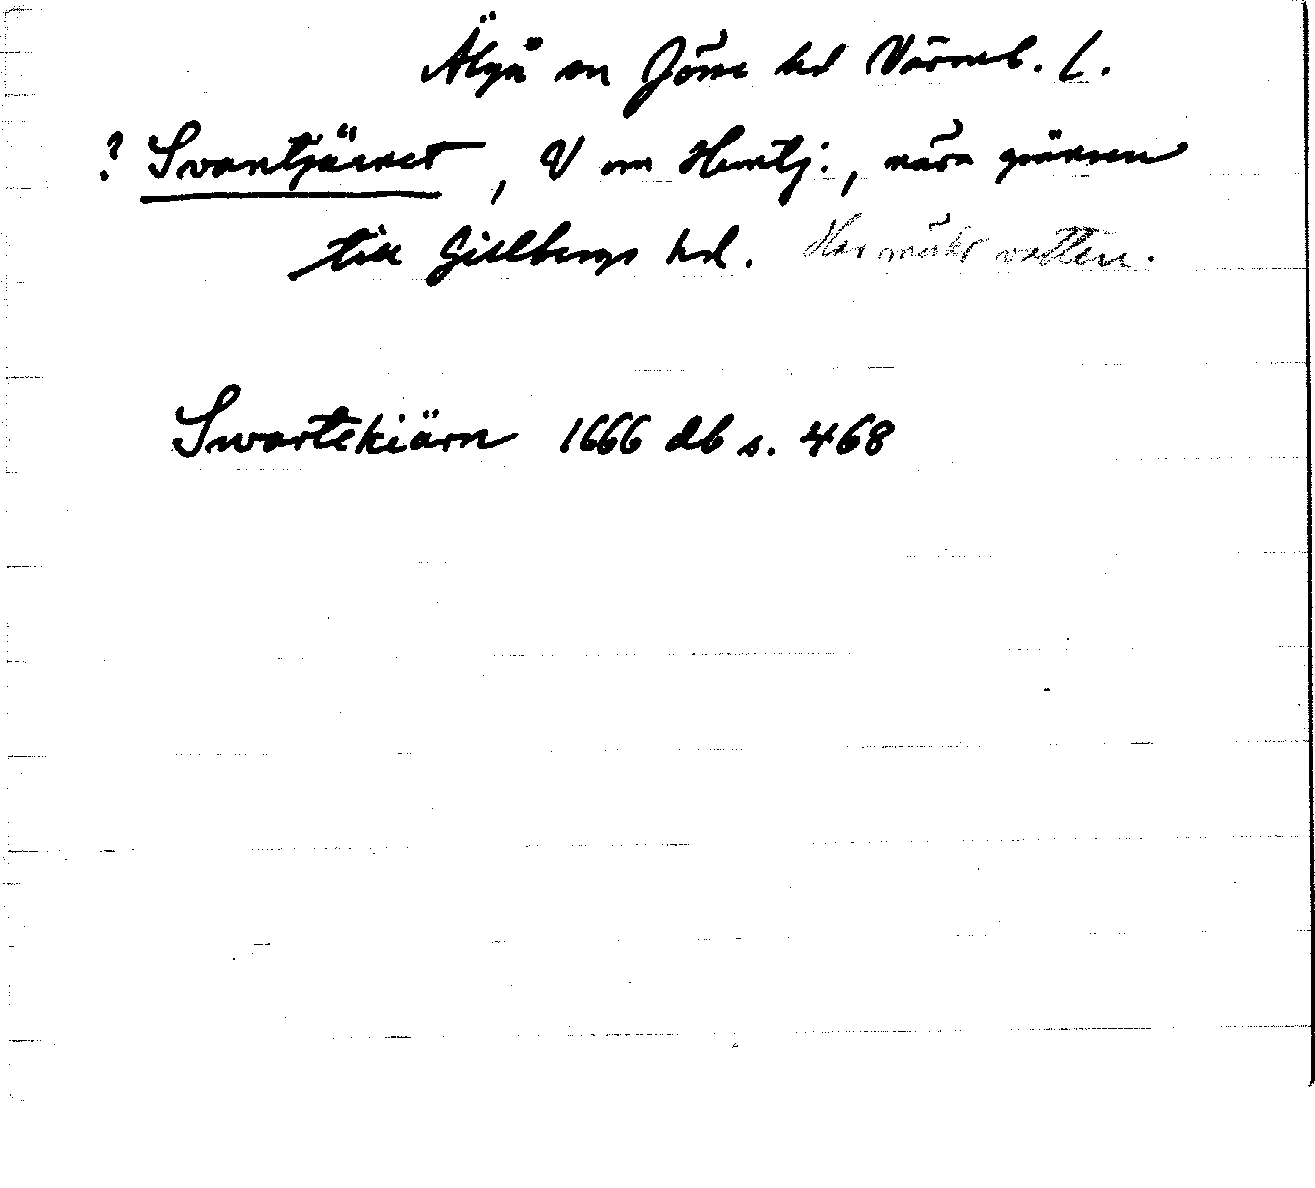 Älgå sn Jösse hd Värml. l.
? Svarttjärnet, V om Hemtj:, nära gränsen
till Gillbergs hd. Har mörkt vatten.
Swartekiärn 1666 db s. 468